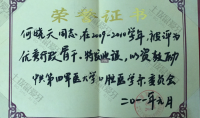 荣誉证书
何晓天同志：在2009-2010学年，被评为
优秀行政骨干。特发此证，以资鼓励
中共第四军医大学口腔医学系委员会
二〇一一年元月